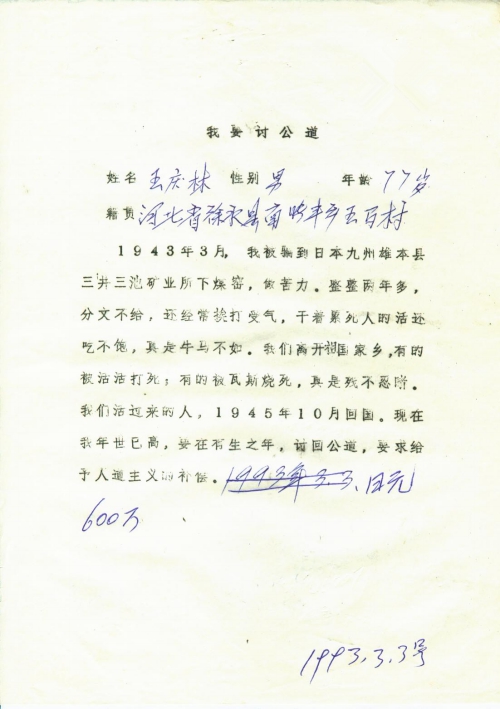 我要讨公道
姓名 王庆林 性别 男 年龄 77岁
籍贯 河北省徐水县 乡 村
1943年3月，我被骗到日本九州雄本县
三井三池矿业所下煤窑，做苦力。整整两年多，
分文不给，还经常挨打受气，干着累死人的活还
吃不饱，真是牛马不如。我们离开祖国家乡，有的
被活活打死；有的被瓦斯烧死，真是残不忍睹。
我们活过来的人，1945年10月回国。现在
我年世已高，要在有生之年，讨回公道，要求给
予人道主义的补偿。1993年3.3、日元
600万
1993.3.3号